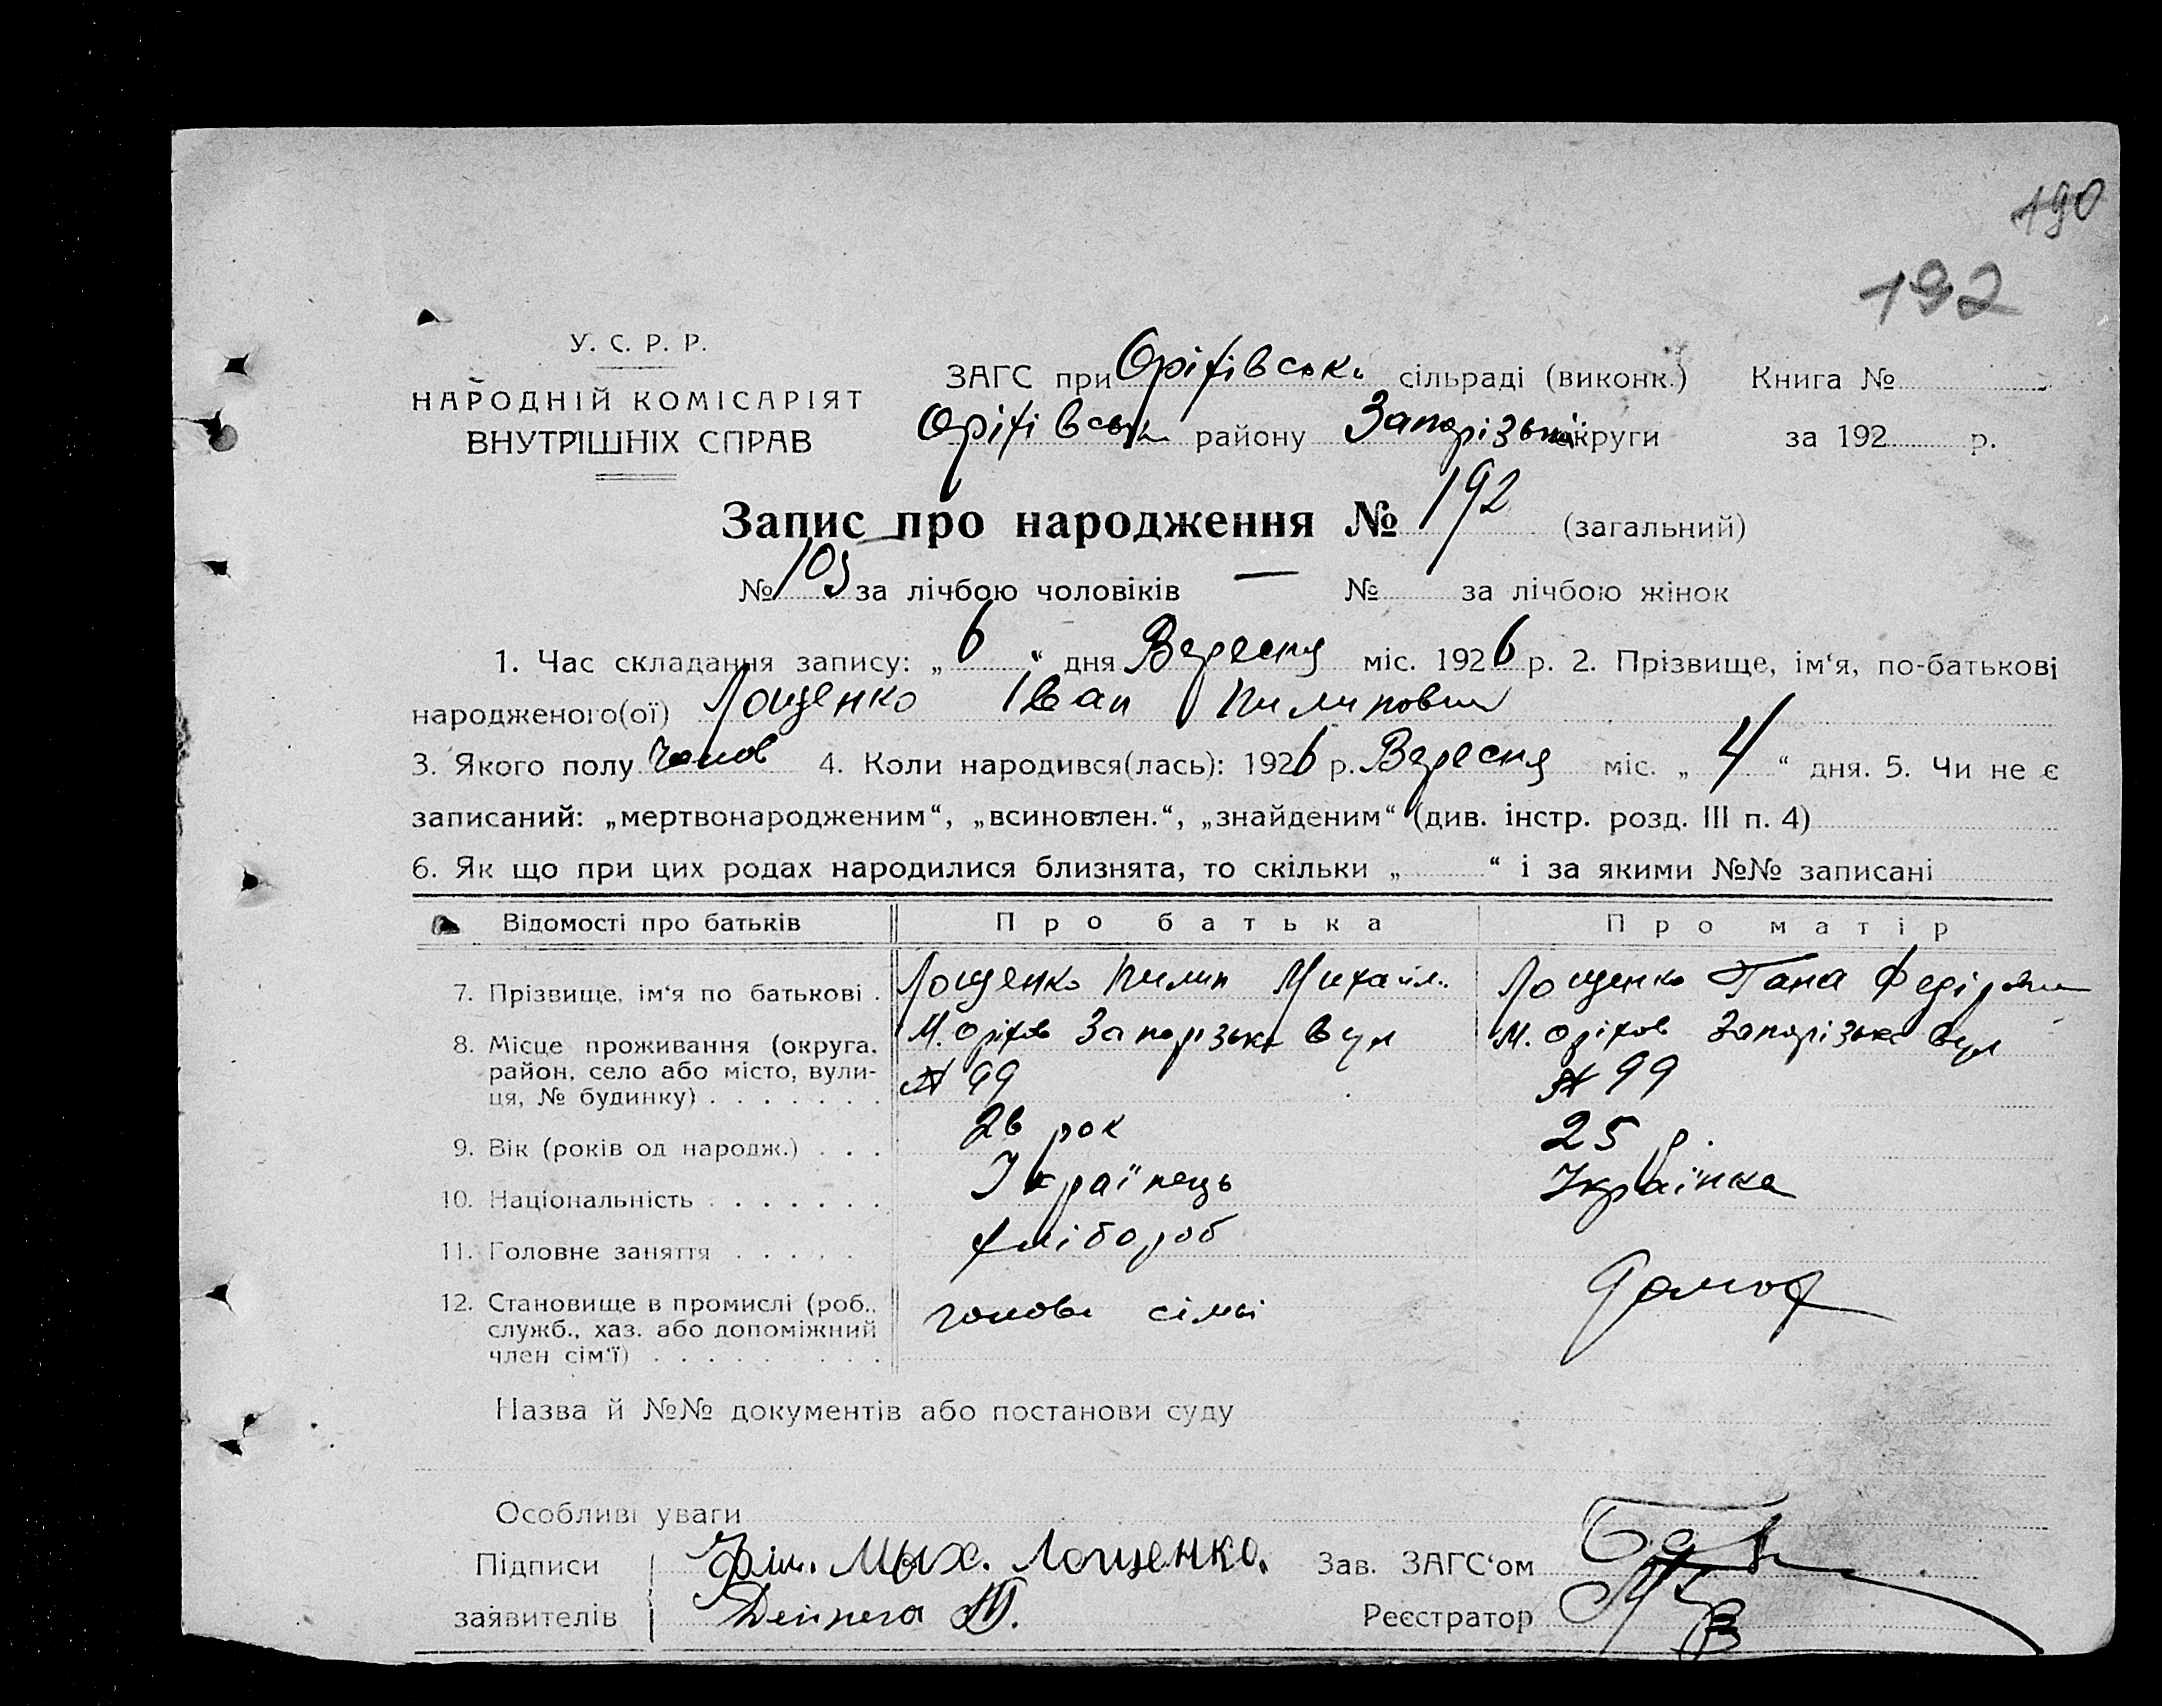 190
192
У. С. Р. Р.
НАРОДНІЙ КОМІСАРІЯТ
ВНУТРІШНІХ СПРАВ
ЗАГС при Оріхівськ. сільраді (виконк.) Книга №
Оріхівськ району Запорізької округи за 192 р.
Запис про народження № 192 (загальний)
№ 103 за лічбою чоловіків — № за лічбою жінок
1. Час складання запису: „ 6 “ дня Вересня міс. 1926 р. 2. Прізвище, ім‘я, по-батькові
народженого(ої) Лощенко Іван Пилипович
3. Якого полу чолов 4. Коли народився(лась): 1926 р. Вересня міс. „ 4 “ дня. 5. Чи не є
записаний: „мертвонародженим“, „всиновлен.“, „знайденим“ (див. інстр. розд. III п. 4)
6. Як що при цих родах народилися близнята, то скільки „ “ і за якими №№ записані
Відомості про батьків Про батька Про матір
7. Прізвище, ім‘я по батькові . Лощенко Пилип Михайл. Лощенко Гана Федіровн
8. Місце проживання (округа, район, село або місто, вулиця, № будинку) М. Оріхов Запорізька вул № 99 М. Оріхов Запорізька вул № 99
9. Вік (років од народж.) . . . 26 рок 25 р.
10. Національність . . . . . . . Українець Українка
11. Головне заняття . . . . . хлібороб
12. Становище в промислі (роб., служб., хаз. або допоміжний член сім‘ї) . . . . . . . . . голова сімьі домог
Назва й №№ документів або постанови суду
Особливі уваги
Підписи Фил. Мых. Лощенко. Зав. ЗАГС‘ом
заявителів Реєстратор